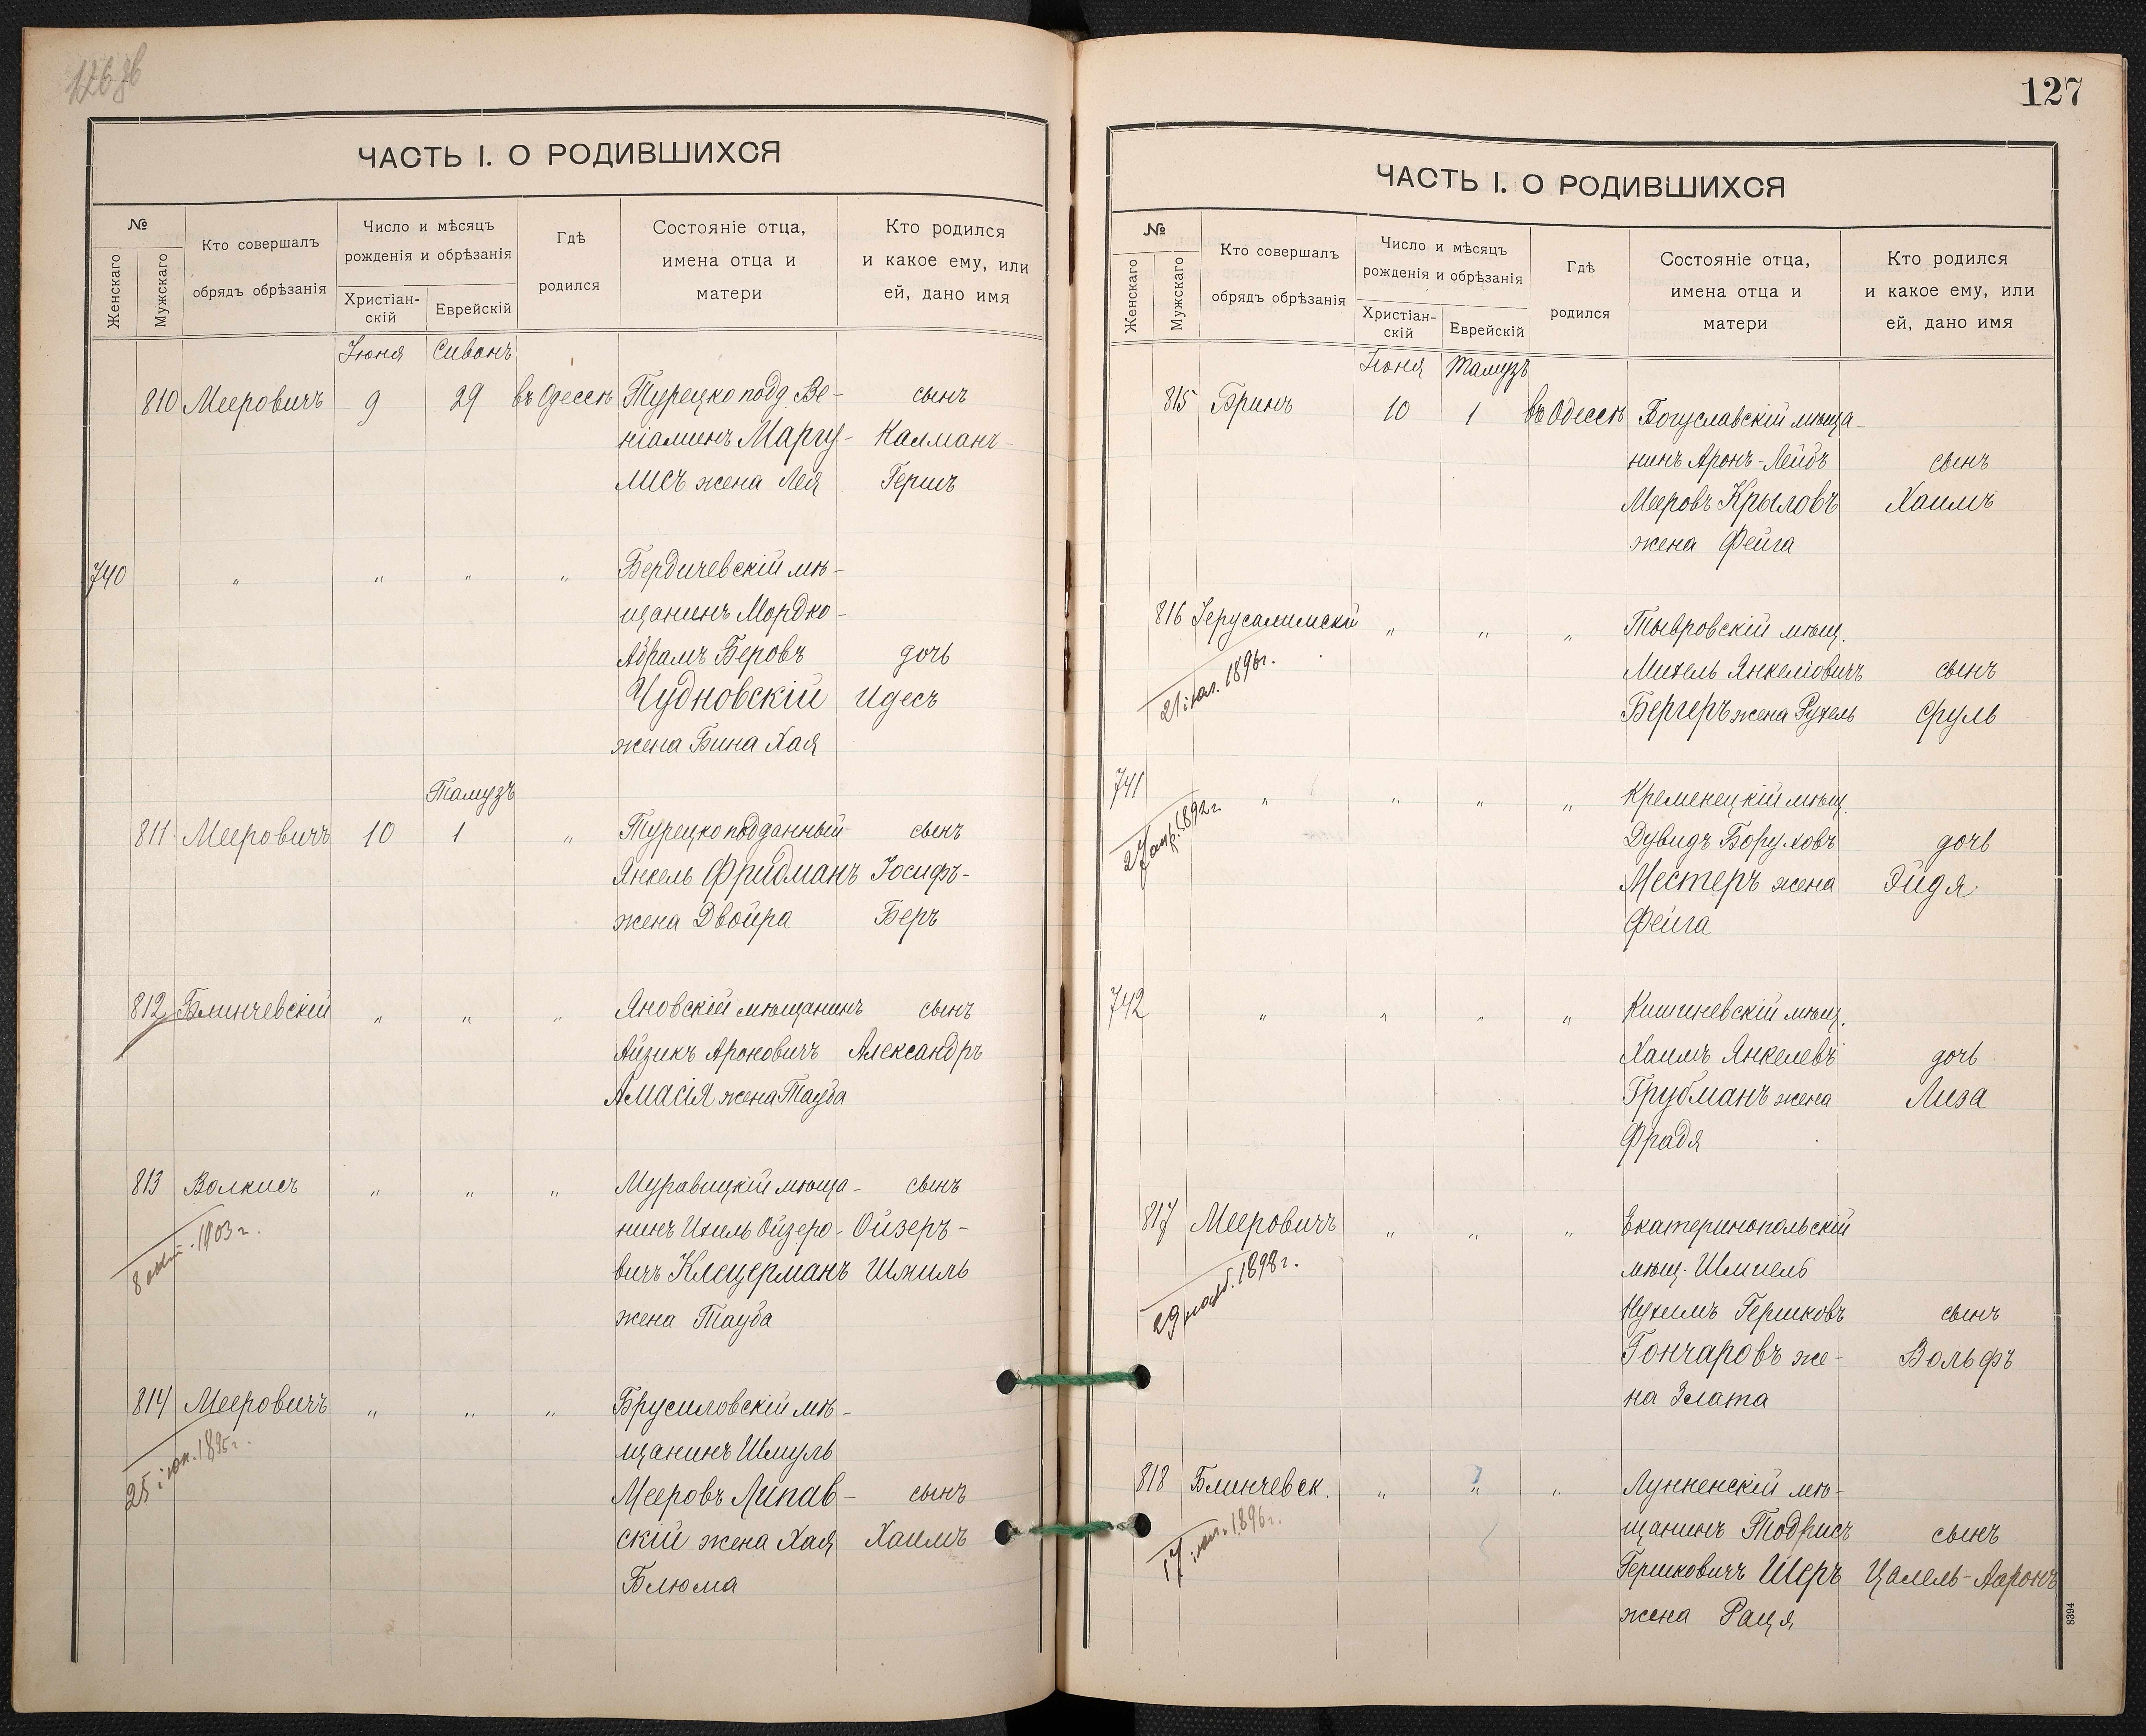 126 об
ЧАСТЬ I. О РОДИВШИХСЯ
№
Женскаго
Мужскаго
Кто совершалъ
обрядъ обрѣзанія
Число и мѣсяцъ
рожденія и обрѣзанія
Христіан-
скій
Еврейскій
Гдѣ
родился
Состояніе отца,
имена отца и
матери
Кто родился
и какое ему, или
ей, дано имя
Іюня Сивонъ
810 Мееровичъ 9 29 въ Одессѣ Турецко подд. Ве- сынъ
ніаминъ Маргу- Калманъ-
лисъ жена Лея Гершъ
740 " " " " Бердичевскій мѣ-
щанинъ Мордко-
Абрамъ Беровъ дочь
Чудновскій Идесъ
жена Бина Хая
Тамузъ
811 Мееровичъ 10 1 " Турецко подданный сынъ
Янкель Фридманъ Іосифъ-
жена Двойра Беръ
812 Блинчевскій " " " Яновскій мѣщанинъ сынъ
Айзикъ Ароновичъ Александръ
Амасія жена Тауба
813 Волкисъ " " " Муравицкій мѣща- сынъ
нинъ Ихиль Ойзеро- Ойзеръ-
8 окт. 1903 г. вичъ Клецерманъ Шмиль
жена Тауба
814 Мееровичъ " " " Брусиловскій мѣ-
25 іюн. 1895 г. щанинъ Шмуль
Мееровъ Липав- сынъ
скій жена Хая Хаимъ
Блюма
127
ЧАСТЬ I. О РОДИВШИХСЯ
№
Женскаго
Мужскаго
Кто совершалъ
обрядъ обрѣзанія
Число и мѣсяцъ
рожденія и обрѣзанія
Христіан-
скій
Еврейскій
Гдѣ
родился
Состояніе отца,
имена отца и
матери
Кто родился
и какое ему, или
ей, дано имя
Іюня Тамузъ
815 Бринъ 10 1 въ Одессѣ Богуславскій мѣща-
нинъ Аронъ-Лейбъ сынъ
Мееровъ Крыловъ Хаимъ
жена Фейга
816 Іерусалимскій " " " Тывровскій мѣщ.
21 іюл. 1896 г. Михель Янкеліовичъ сынъ
Бергеръ жена Рухель Сруль
741 " " " " Кременецкій мѣщ.
27 апр. 1892 г. Дувидъ Боруховъ дочь
Местеръ жена Эйдя
Фейга
742 " " " " Кишиневскій мѣщ.
Хаимъ Янкелевъ дочь
Трубманъ жена Лиза
Фрадя
817 Мееровичъ " " " Екатеринопольскій
29 нояб. 1898 г. мѣщ. Шмиель
Нухимъ Гершковъ сынъ
Гончаровъ же- Вольфъ
на Злата
818 Блинчевск. " " " Лунненскій мѣ-
17 1896 г. щанинъ Тодрисъ сынъ
Гершковичъ Шеръ Цалель-Ааронъ
жена Раця
8394